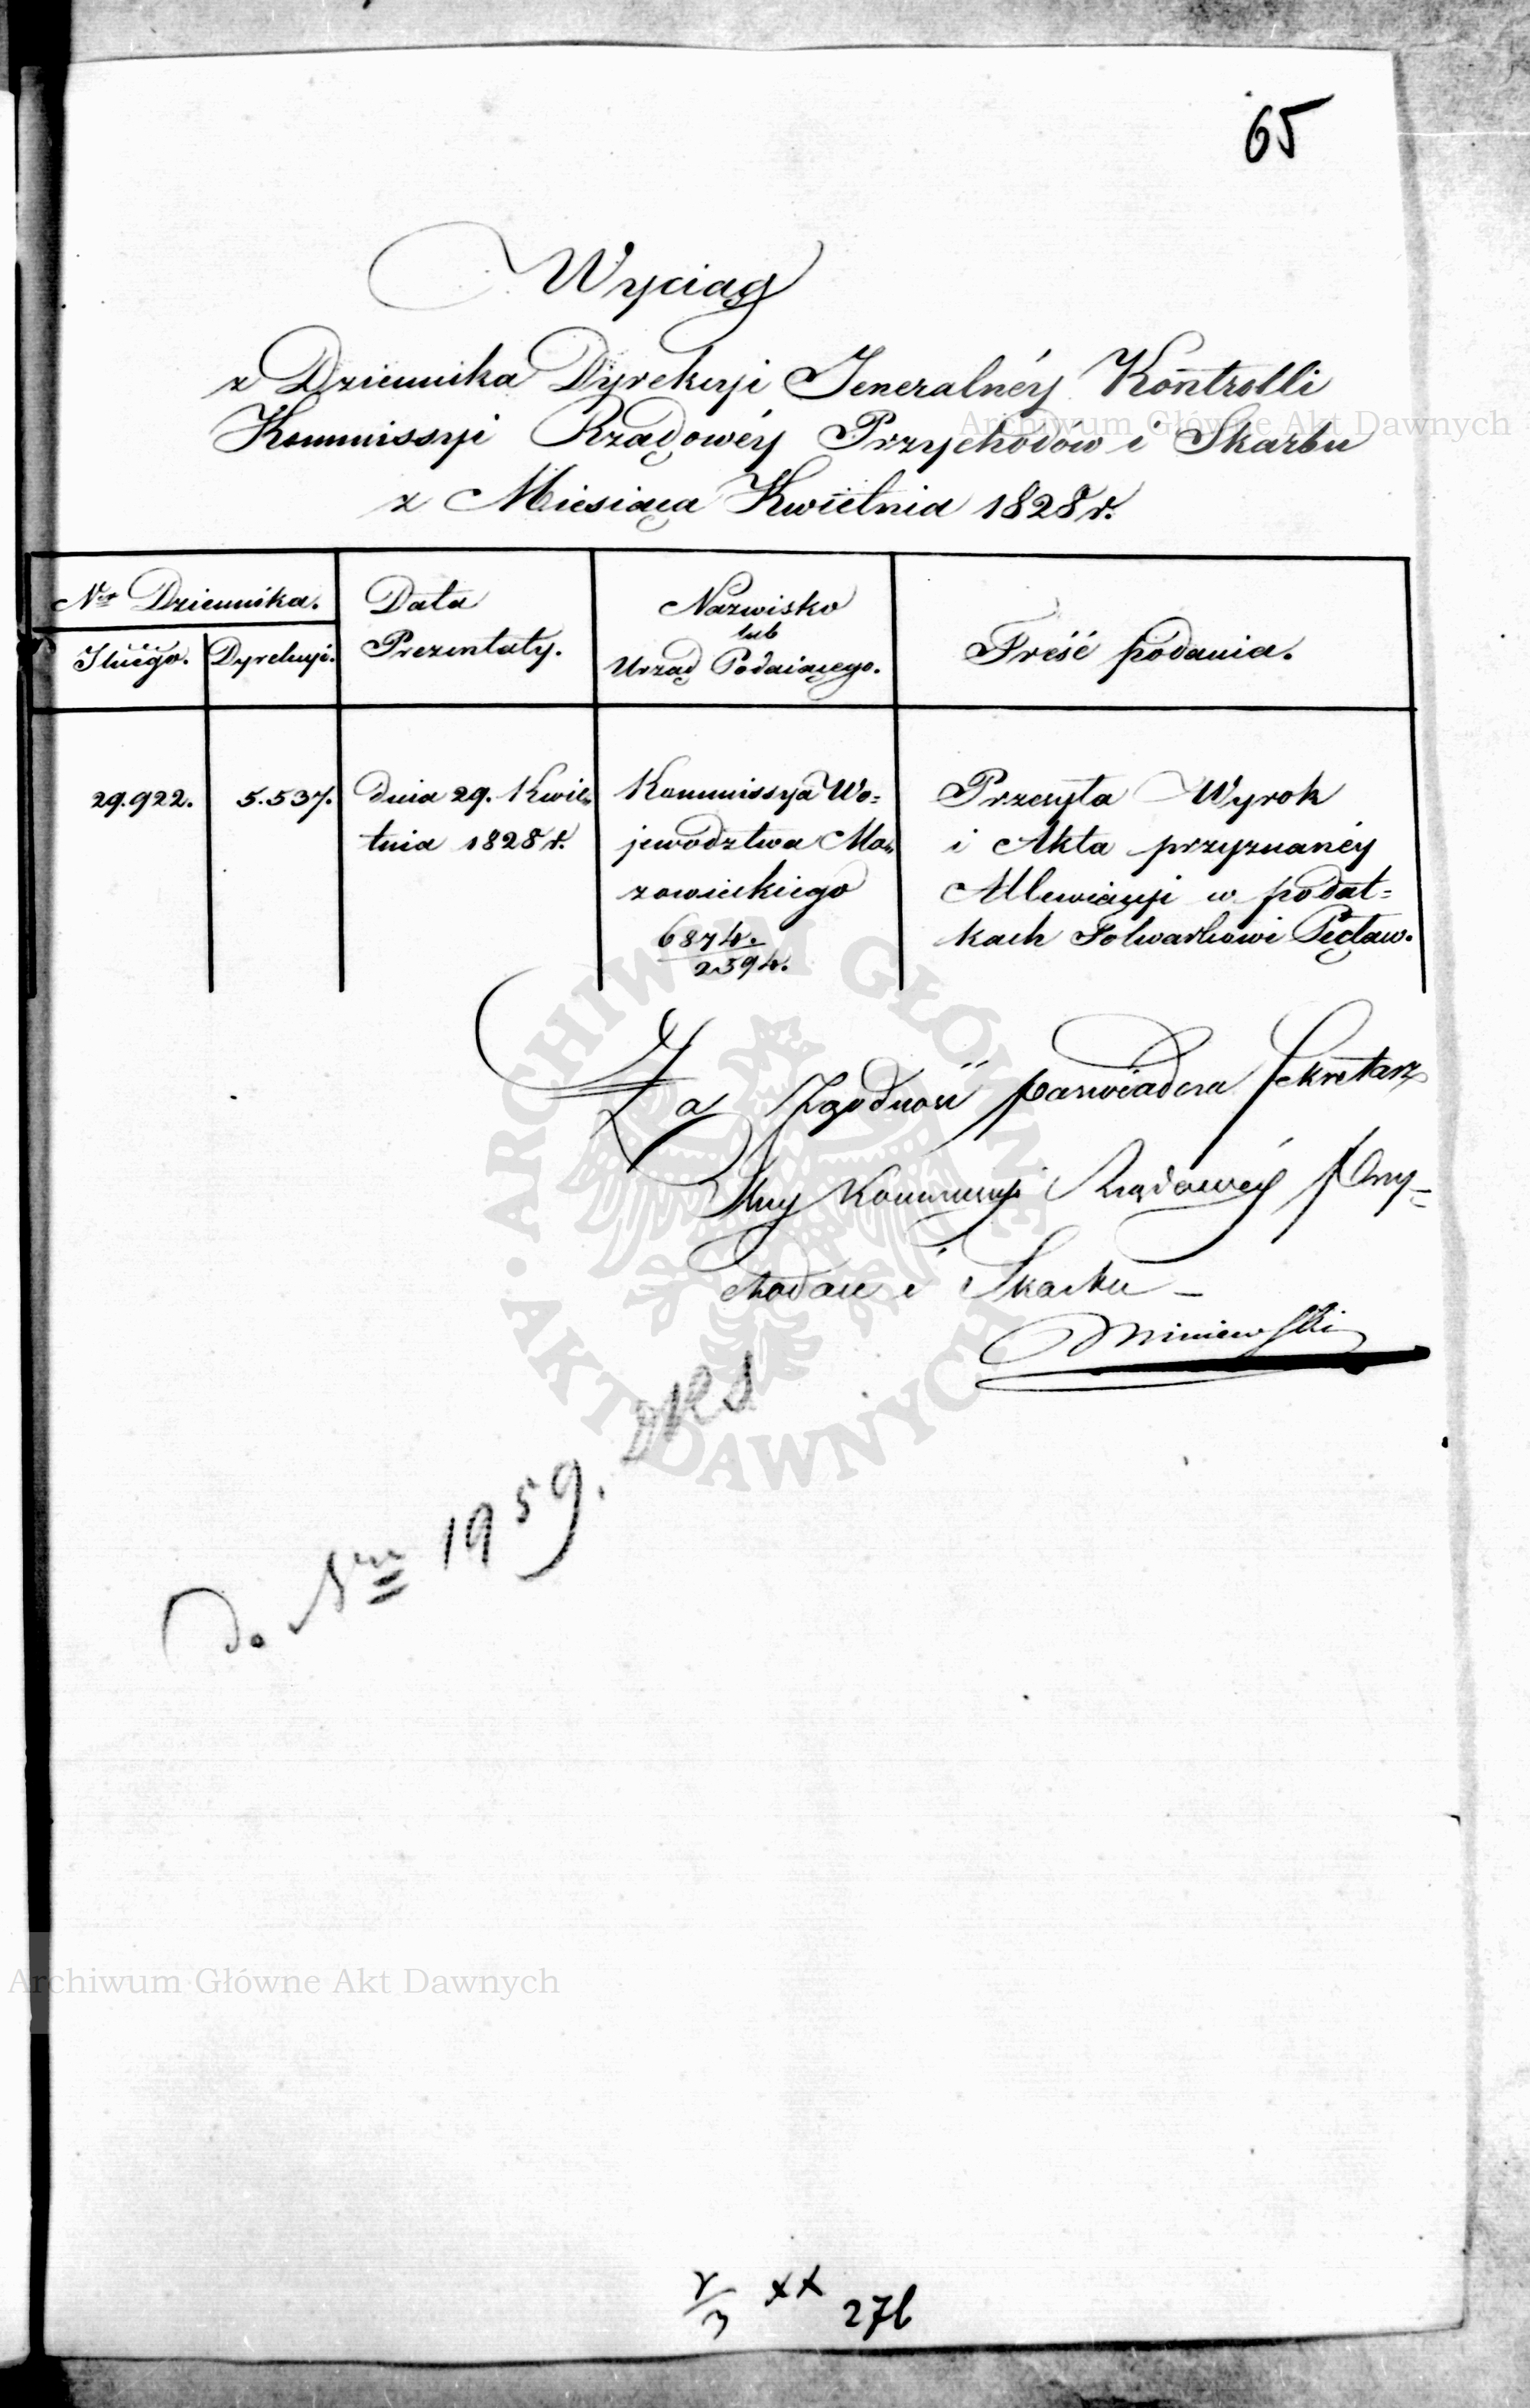 65
Wyciąg
z Dziennika Dyrekcyi Jeneralnéy Kontrolli
Kommissyi Rządowéy Przychodów i Skarbu
z Miesiąca Kwietnia 1828 r.
Nr Dziennika.
Dyrekcyi.
Data
Prezentaty.
Nazwisko
lub
Urząd Podaiącego.
Treść podania.
29.922.
5.537.
dnia 29. Kwie=
tnia 1828 r.
Kommissya Wo=
jewództwa Ma=
zowieckiego
6874.
2394.
Przesyła Wyrok
i Akta przyznanéy
Allewiacyi w podat=
kach Folwarkowi Pęcław.
Za Zgodność zaświadcza Sekretarz
Kommissyi Rządowéy Przy=
chodów i Skarbu –
d. Nru 1959.
XX
276
Archiwum Główne Akt Dawnych
Archiwum Główne Akt Dawnych
ARCHIWUM GŁÓWNE
AKT DAWNYCH